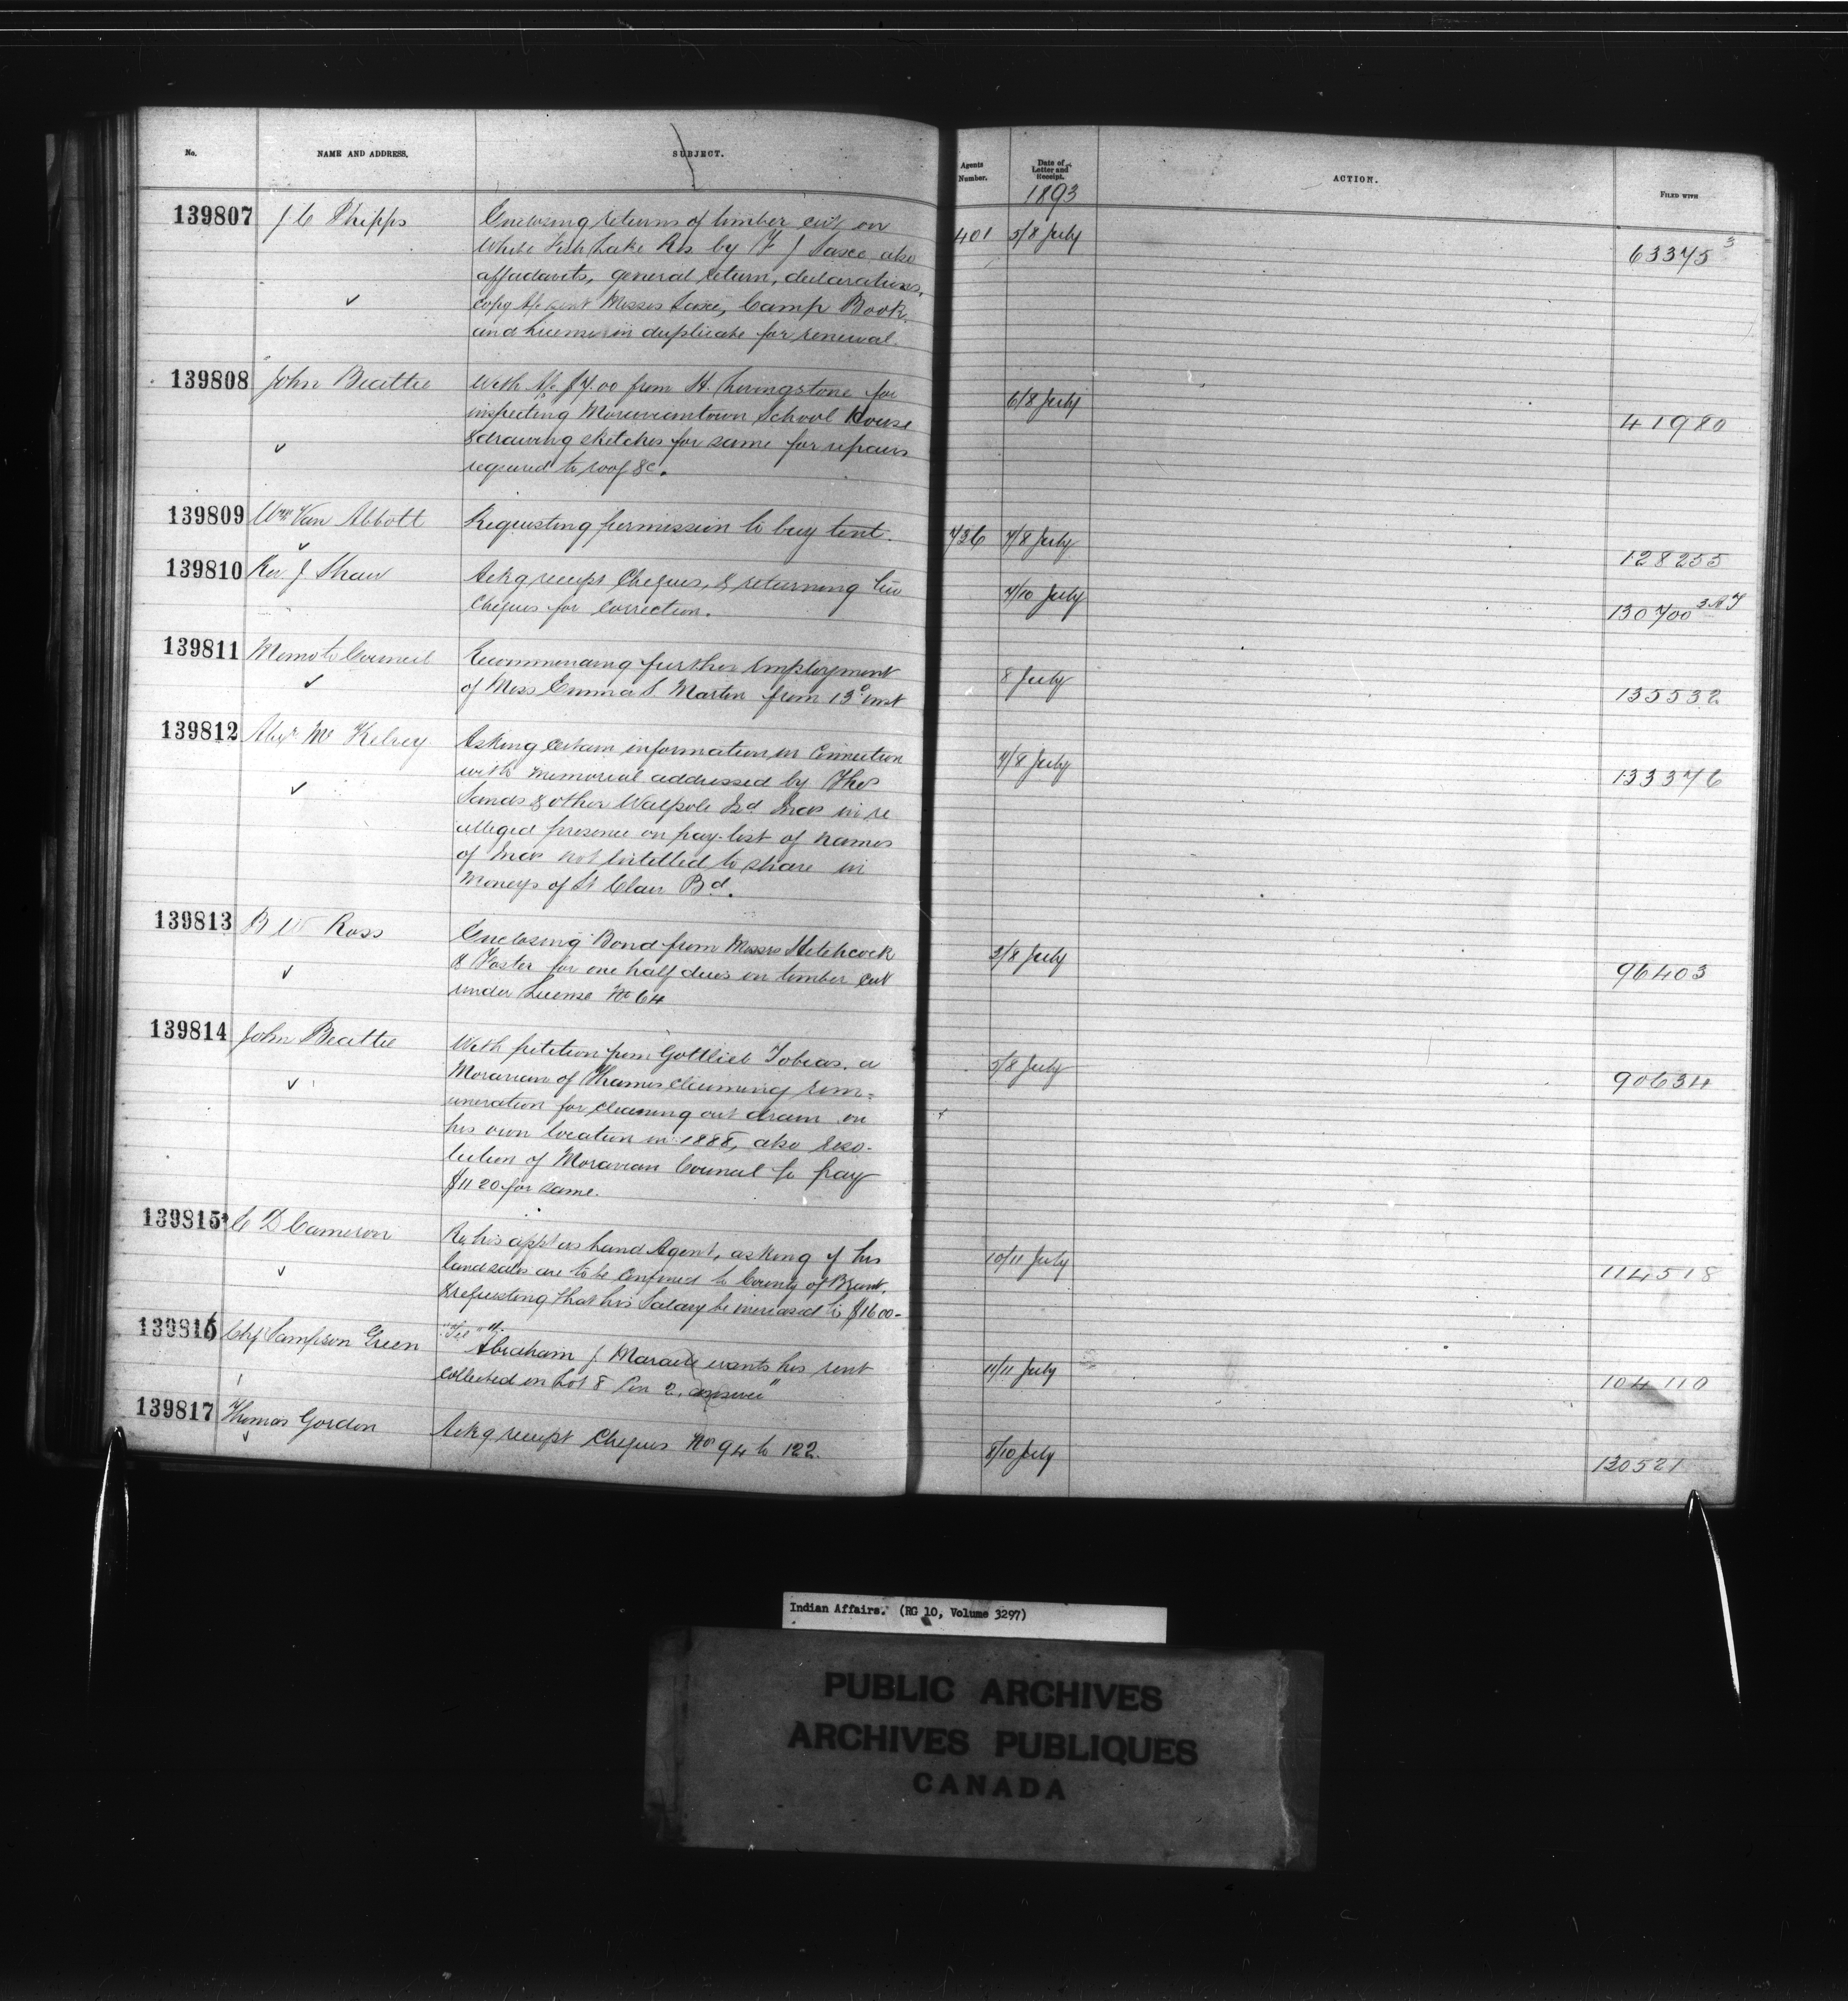 No.
NAME AND ADDRESS.
SUBJECT.
Agents Number.
Date of Letter and Receipt.
1893
ACTION.
FILED WITH
139807 J C Phipps
Enclosing returns of timber cut on
White Fish Lake Res by F J Sasee, also
affadavits, general return, declarations,
copy a/c sent Messrs Sasee, Camp Book
and License in duplicate for renewal.
401 5/8 July 63375 3
139808 John Beattie
With a/c $7.00 from H. Livingstone for
inspecting Moraviantown School House
& drawing sketches for same for repairs
required to roof &c.
6/8 July 41980
139809 Wm Van Abbott
Requesting permission to buy tent.
736 7/8 July 128255
139810 Rev J Shaw
Ackg receipt Cheques, & returning two
Cheques for correction.
7/10 July 130700
139811 Memo to Council
Recommending further Employment
of Miss Emma S. Martin from 13th inst
8 July 135532
139812 Alexr Mc Kelvey
Asking certain information in Connection
with memorial addressed by Thos
Sands & other Walpole Isd Inds in re
alleged presence on pay-list of names
of Inds not entitled to share in
Moneys of St Clair Bd.
7/8 July 133376
139813 B W Ross
Enclosing Bond from Messrs Hitchcock
& Foster for one half dues on timber cut
under License No 64
3/8 July 96403
139814 John Beattie
With petition from Gottlieb Tobias, a
Moravian of Thames claiming rem=
uneration for cleaning out drain on
his own location in 1888, also reso-
lution of Moravian Council to pay
$11 20 for same.
5/8 July 90634
139815 C D Cameron
Re his appt as Land Agent, asking if his
land sales are to be confined to County of Brant,
& requesting that his Salary be increased to $1600-
10/11 July 114518
139816 Chf Sampson Green
"Tel"
"Abraham J Maracle wants his rent
collected on Lot 8 Con 2, answer"
11/11 July 104110
139817 Thomas Gordon
Ackg receipt Cheques Nos 94 to 122.
8/10 July 130521
Indian Affairs. (RG 10, Volume 3297)
PUBLIC ARCHIVES
ARCHIVES PUBLIQUES
CANADA